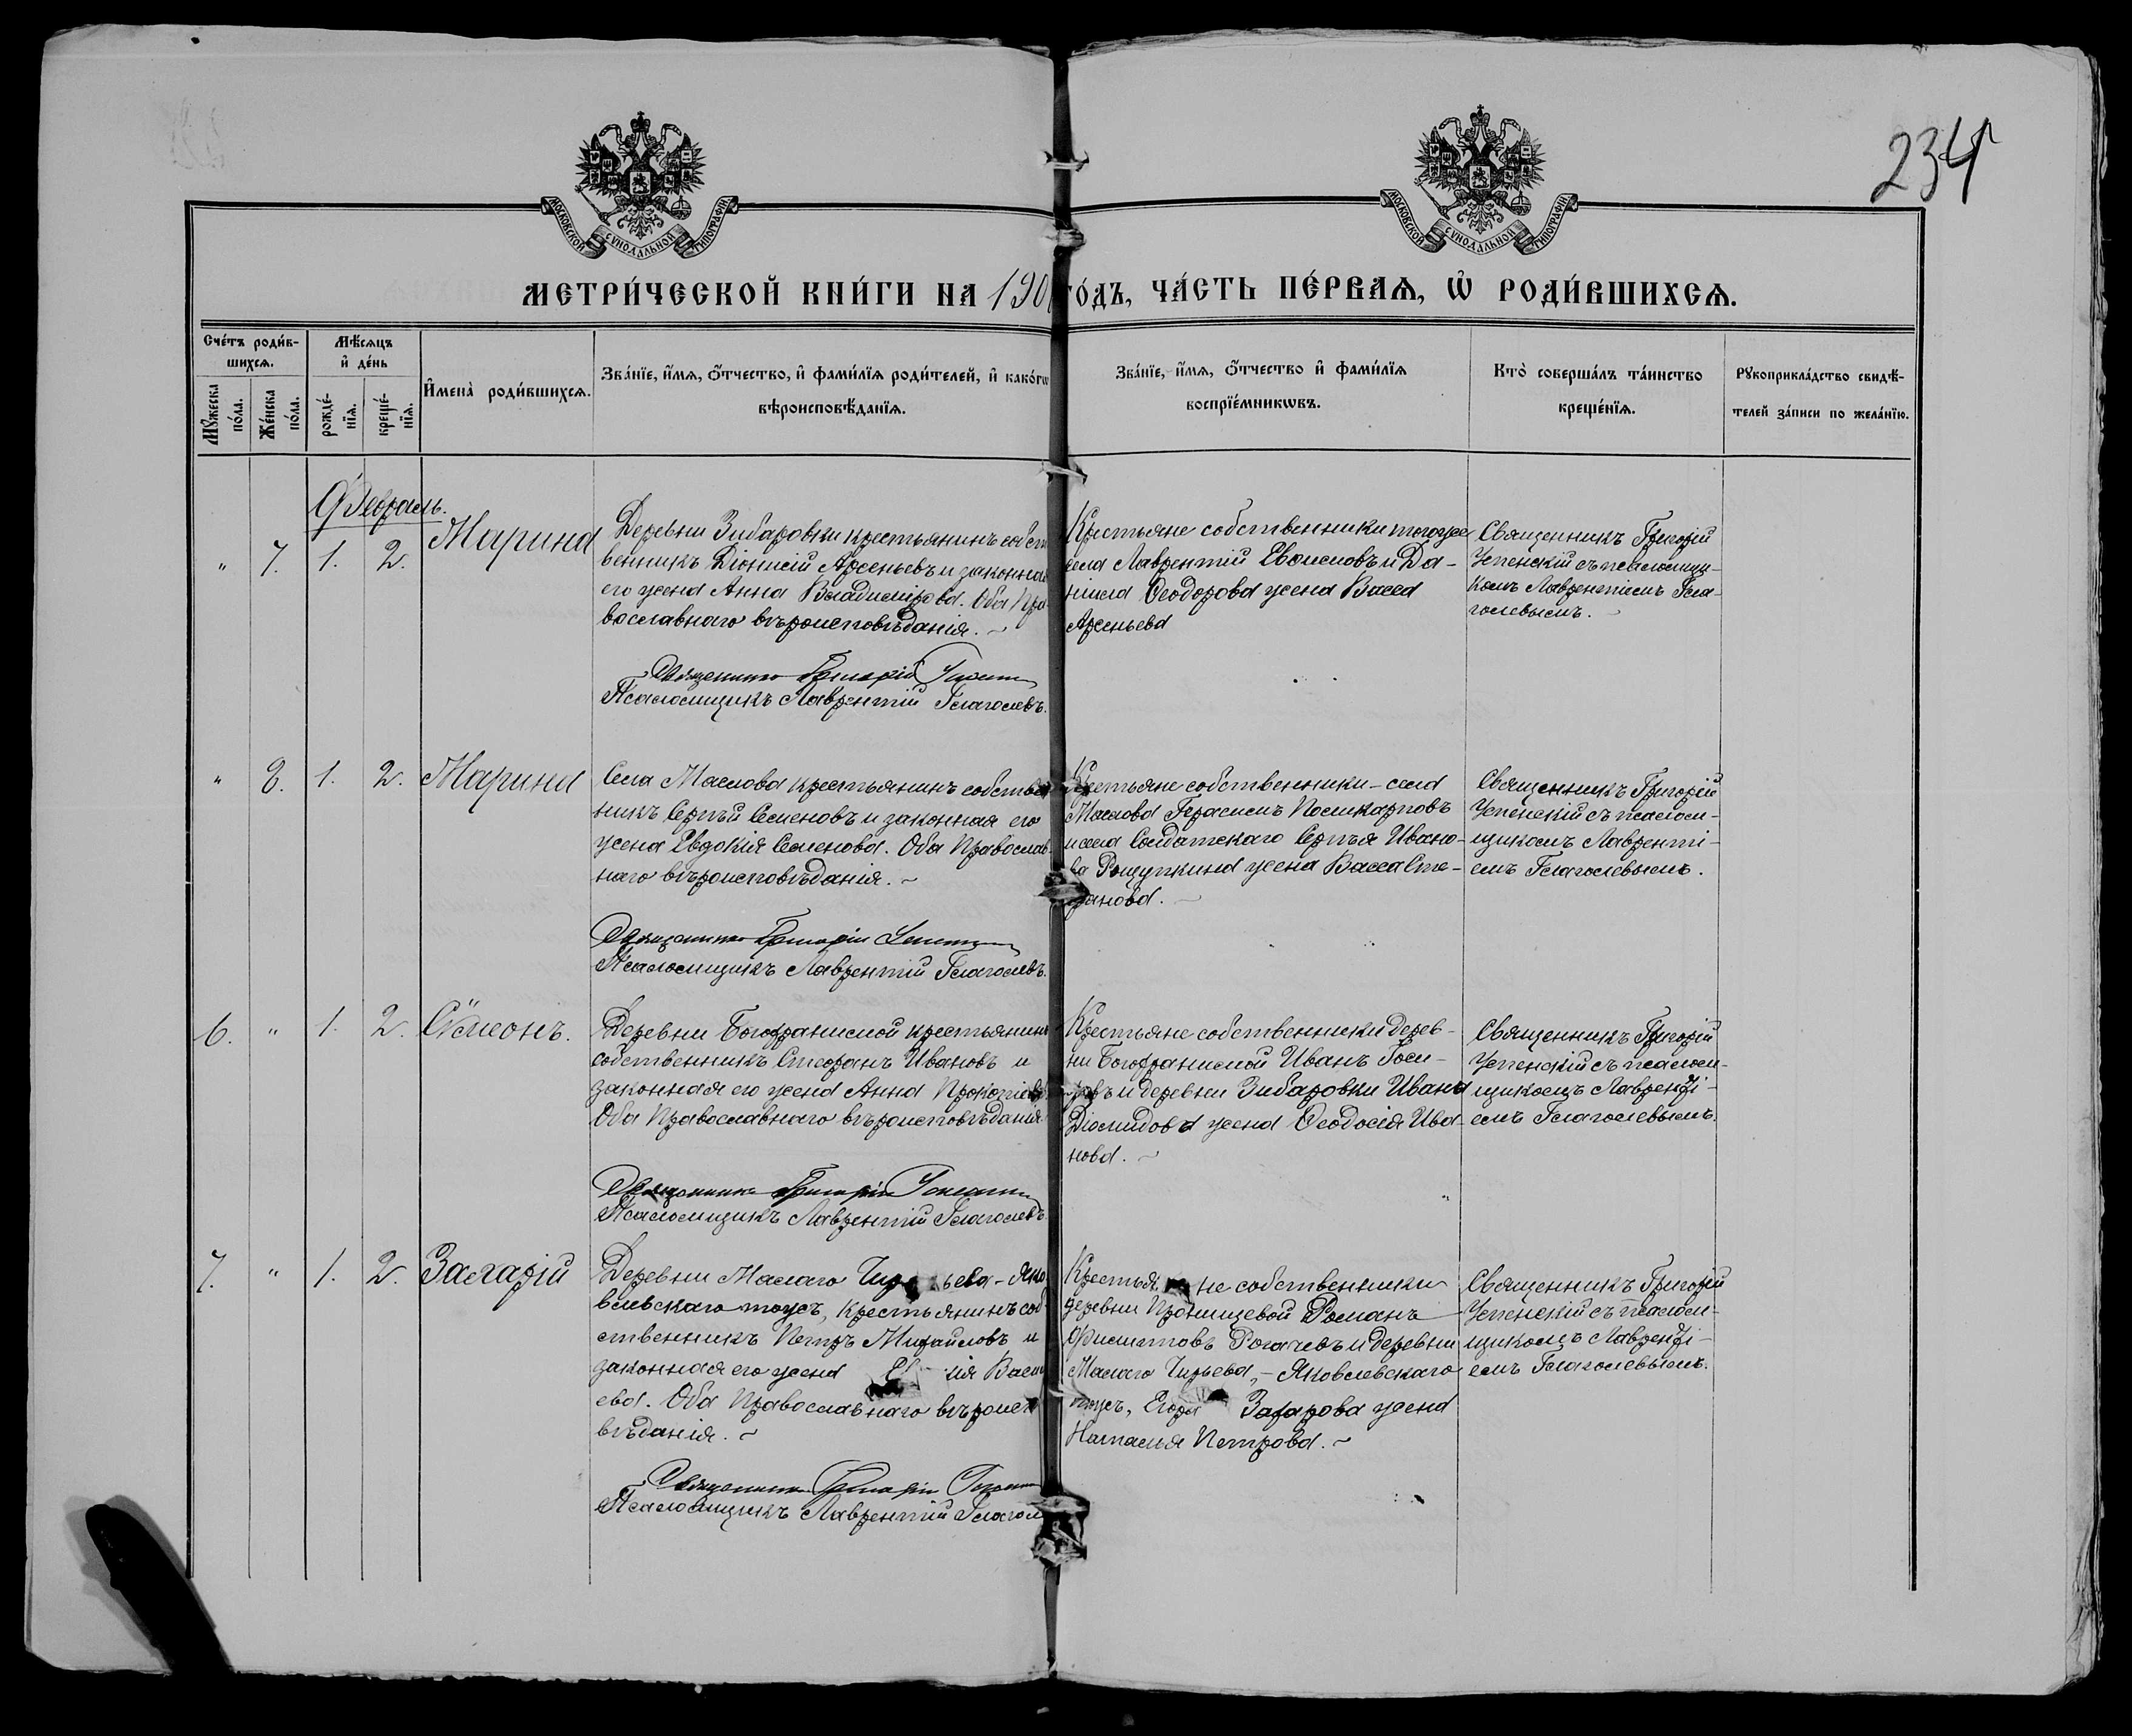 234
МОСКОВСКОЙ СѴНОДАЛЬНОЙ ТИПОГРАФІИ
МОСКОВСКОЙ СѴНОДАЛЬНОЙ ТИПОГРАФІИ
МЕТРИ́ЧЕСКОЙ КНИ́ГИ НА 190 ГО́ДЪ, ЧА́СТЬ ПЕ́РВАѦ, Ѡ҆ РОДИ́ВШИХСѦ.
Сче́тъ роди́в-
шихсѧ.
Мꙋжеска
по́ла.
Же́нска
по́ла.
Мѣ́сѧцъ
и҆ де́нь
рожде́-
нїѧ.
креще́-
нїѧ.
И҆мена̀ роди́вшихсѧ.
Зва́нїе, и҆́мѧ, ѻ҆́тчество, и҆ фами́лїѧ роди́телей, и҆ како́гѡ
вѣроисповѣ́данїѧ.
Зва́нїе, и҆́мѧ, ѻ҆́тчество и҆ фами́лїѧ
воспрїе́мникѡвъ.
Кто̀ соверша́лъ та́инство
креще́нїѧ.
Рꙋкоприкла́дство свидѣ́-
телей за́писи по жела́нїю.
Февраль.
" 7. 1. 2. Марина
Деревни Зибаровки крестьянинъ собст
венникъ Діонисій Арсеньевъ и законная
его жена Анна Владимірова. Оба Пра-
вославнаго вѣроисповѣданія. ~
Священникъ Григорій
Псаломщикъ Лаврентій Глаголевъ.
Крестьяне собственники тогоже
села Лаврентій и Да-
ніила Ѳеодорова жена Васса
Арсеньева
Священникъ Григорій
Успенскій съ псаломщи-
комъ Лаврентіемъ Гла-
голевымъ.
" 8. 1. 2. Марина
Села Маслова крестьянинъ собствен
никъ Сергѣй Семеновъ и законная его
жена Евдокія Семенова. Оба Православ-
наго вѣроисповѣданія. ~
Священникъ Григорій
Псаломщикъ Лаврентій Глаголевъ.
Крестьяне собственники - села
Маслова Герасимъ Поликарповъ
и села Солдатскаго Сергѣя Ивано-
ва Рощупкина жена Васса Сте-
фанова. ~
Священникъ Григорій
Успенскій съ псалом-
щикомъ Лавренті-
емъ Глаголевымъ.
6. " 1. 2. Сѵмеонъ.
Деревни крестьянинъ
собственникъ Стефанъ Ивановъ и
законная его жена Анна Прокопіева
Оба Православнаго вѣроисповѣданія.
Священникъ Григорій
Псаломщикъ Лаврентій Глаголевъ
Крестьяне собственники дерев-
ни Иванъ
и деревни Зибаровки Ивана
Діомидова жена Ѳеодосія Ива-
нова. ~
Священникъ Григорій
Успенскій съ псалом-
щикомъ Лавренті-
емъ Глаголевымъ.
7. " 1. 2. Захарій
Деревни Малаго - Яко
влевскаго тожъ, крестьянинъ соб-
ственникъ Петръ Михайловъ и
законная его жена Васи
ева. Оба Православнаго вѣроисп
вѣданія. ~
Священникъ Григорій
Псаломщикъ Лаврентій Глагол
Крестьяне собственники
деревни Пронищевой Романъ
Филипповъ Рогачевъ и деревни
Малаго Чирьева, - Яковлевскаго
тожъ, Егора Захарова жена
Наталья Петрова. ~
Священникъ Григорій
Успенскій съ псалом-
щикомъ Лавренті-
емъ Глаголевымъ.